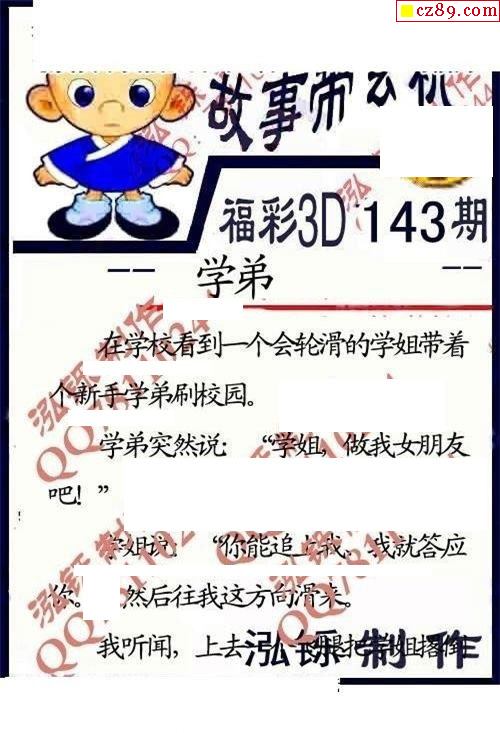 cz89.com
故事
福彩3D 143期
学弟
在学校看到一个会轮滑的学姐带着
个新手学弟刷校园。
学弟突然说：“学姐，做我女朋友
吧！”
学姐说：“你能追上我，我就答应
你。 然后往我这方向滑来。
我听闻，上去一 腿把学姐撂倒
泓铄制作